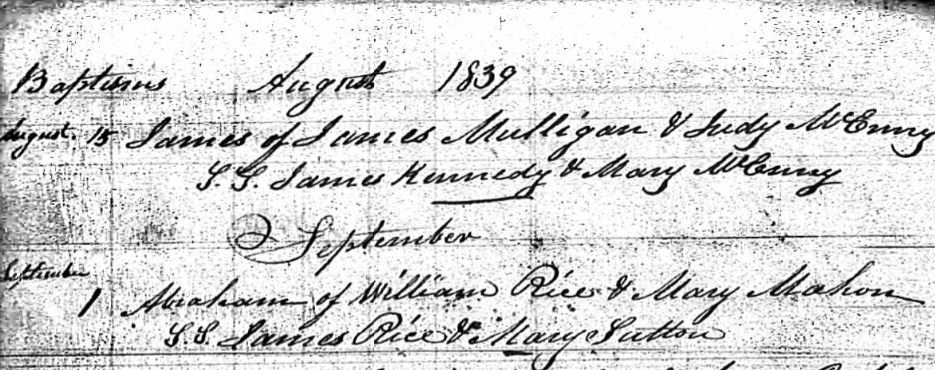 Baptisms August 1839
August. 15 James of James Mulligan & Judy McEnny
S.S. James Kennedy & Mary McEnny
September
September
1 Abraham of William Rice & Mary Mahon
S.S. James Rice & Mary Sutton